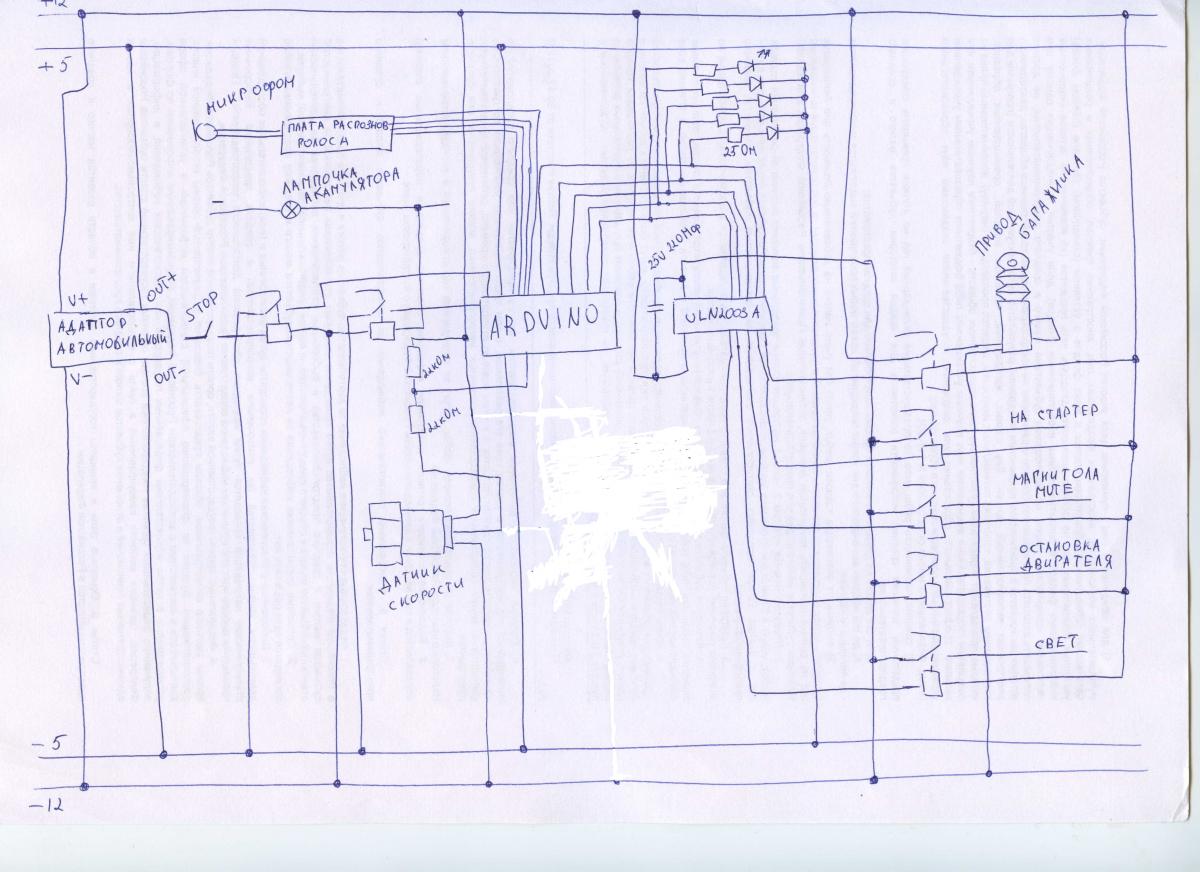 +12
+5
МИКРОФОН
ПЛАТА РАСПОЗНОВ
ГОЛОСА
ЛАМПОЧКА
АКАМУЛЯТОРА
−
1А
25 ОМ
ПРИВОД
БАГАЖНИКА
25V 220МФ
V+
OUT+
STOP
АДАПТОР
АВТОМОБИЛЬНЫЙ
V−
OUT−
ARDUINO
ULN2003A
22кОм
22кОм
НА СТАРТЕР
МАГНИТОЛА
MUTE
ОСТАНОВКА
ДВИГАТЕЛЯ
ДАТЧИК
СКОРОСТИ
СВЕТ
−5
−12